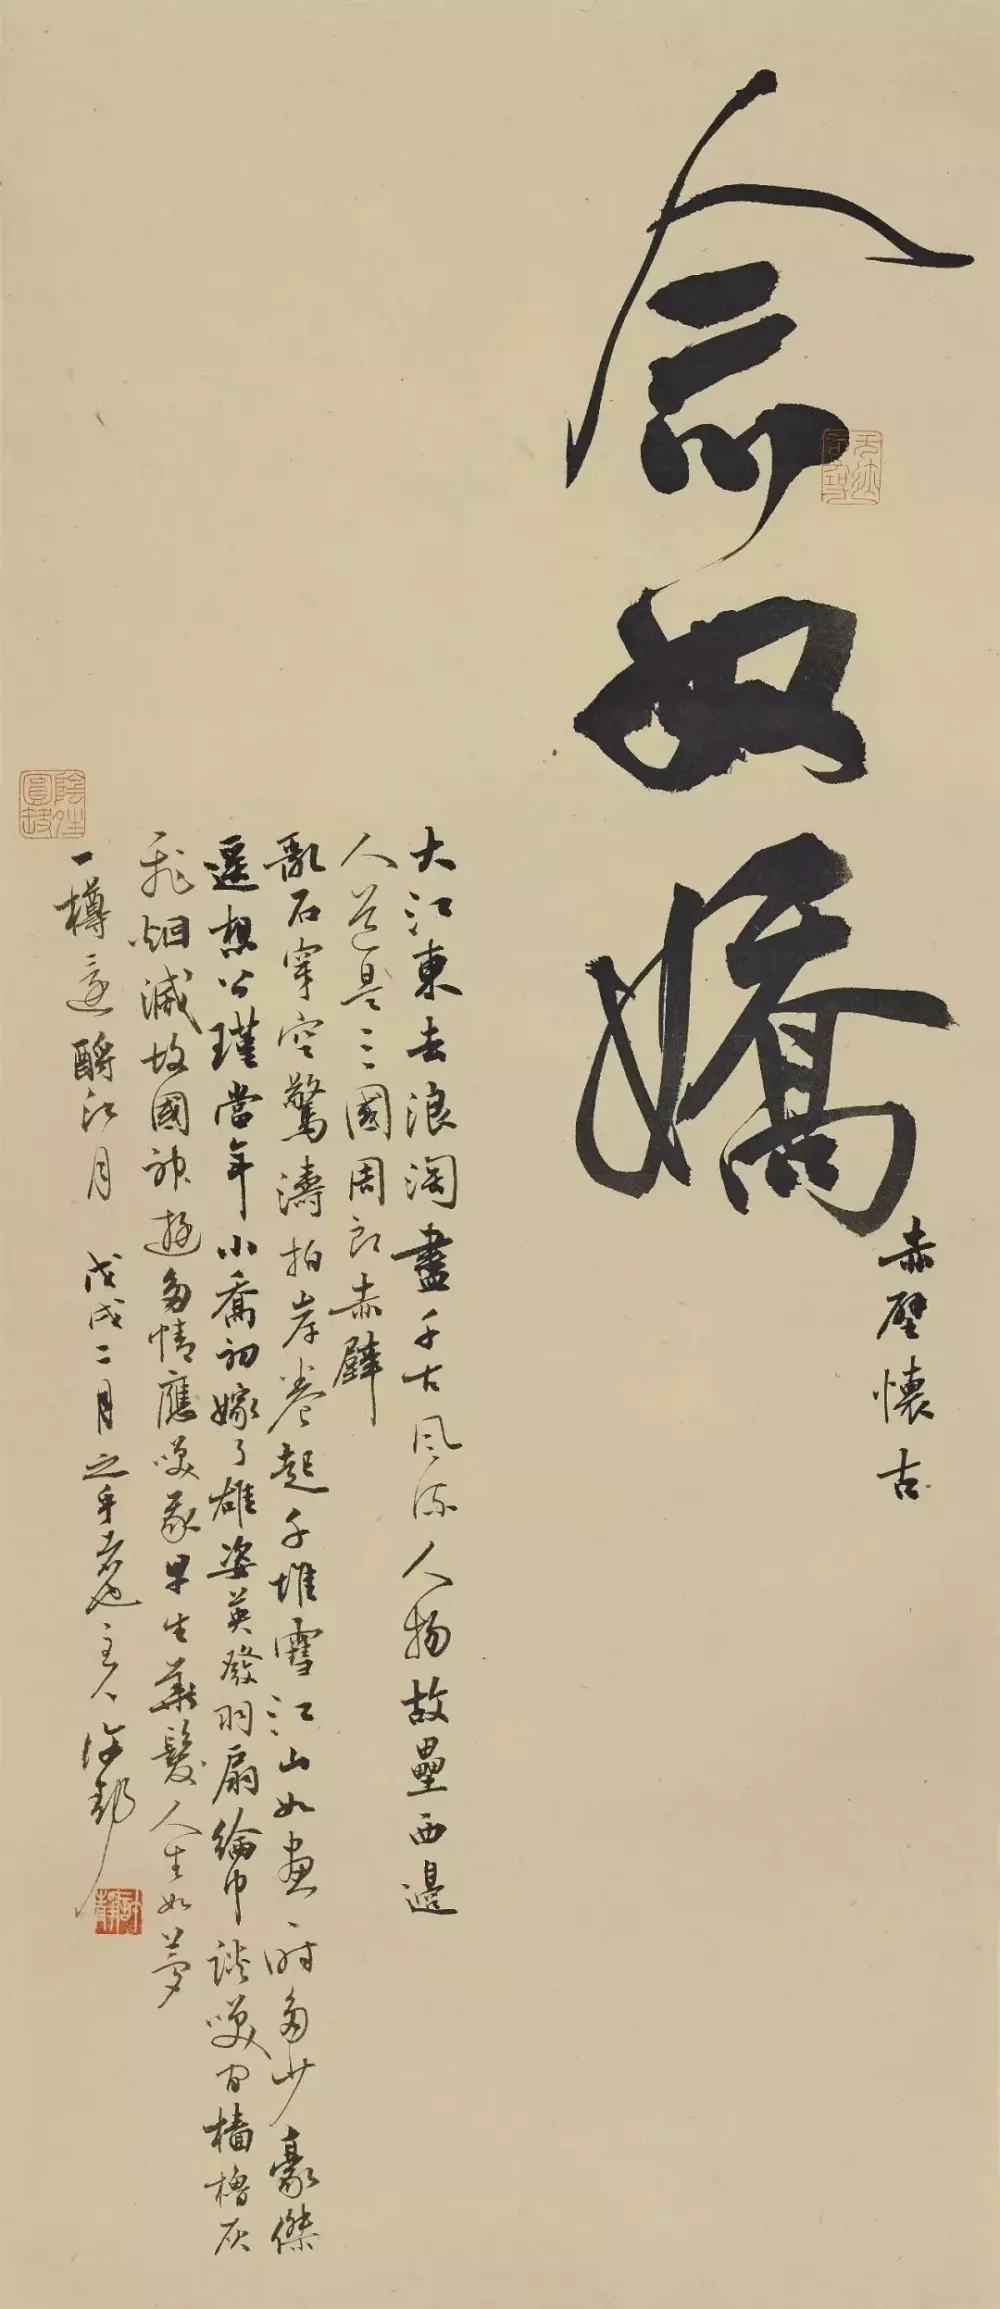 念奴嬌
赤壁懷古
大江東去浪淘盡千古風流人物故壘西邊
人道是三國周郎赤壁
亂石穿空驚濤拍岸卷起千堆雪江山如畫一時多少豪傑
遥想公瑾當年小喬初嫁了雄姿英發羽扇綸巾談咲間檣櫓灰
飛烟滅故國神遊多情應咲我早生華髮人生如夢
一樽還酹江月 戊戌二月之乎者也主人許靜
許靜